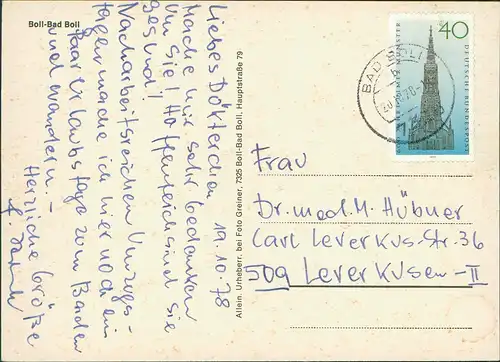 Boll-Bad Boll
19.10.78
Liebes Doktorchen
Mache mir sehr Gedanken
um Sie! Hoffentlich sind Sie
gesund!
Nach arbeitsreichen Umzugs-
tagen mache ich hier noch ein
Paar Urlaubstage zum Baden
und Wandern. –
Herzliche Grüße
Allein. Urheberr. bei Foto Greiner, 7325 Boll-Bad Boll, Hauptstraße 79
40
DEUTSCHE BUNDESPOST
MÜNSTER
BAD BOLL
Frau
Dr. med. M. Hübner
Carl Leverkus-Str. 36
509 Leverkusen-II